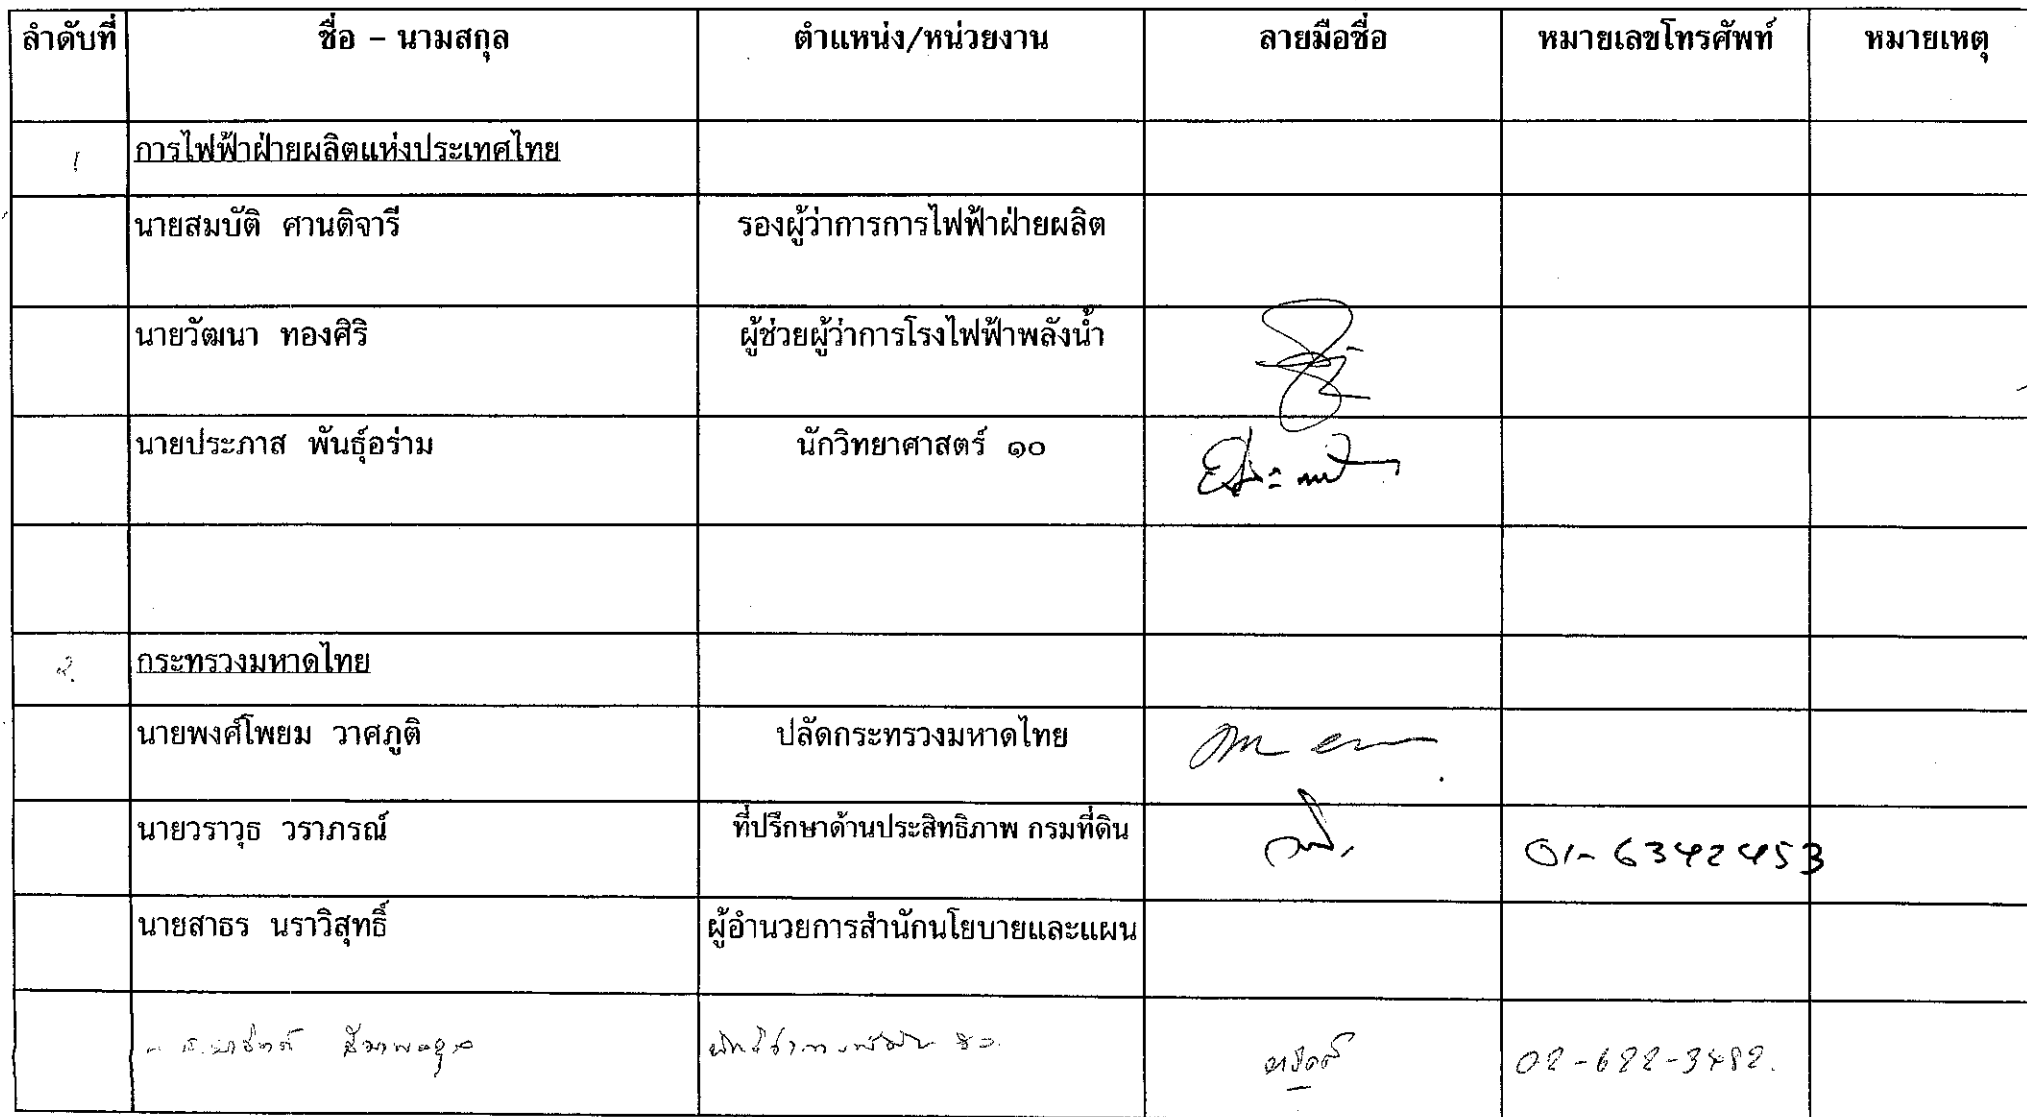 ลำดับที่ ชื่อ - นามสกุล ตำแหน่ง/หน่วยงาน ลายมือชื่อ หมายเลขโทรศัพท์ หมายเหตุ
1 การไฟฟ้าฝ่ายผลิตแห่งประเทศไทย
นายสมบัติ ศานติจารี รองผู้ว่าการการไฟฟ้าฝ่ายผลิต
นายวัฒนา ทองศิริ ผู้ช่วยผู้ว่าการโรงไฟฟ้าพลังน้ำ
นายประภาส พันธุ์อร่าม นักวิทยาศาสตร์ ๑๐
2. กระทรวงมหาดไทย
นายพงศ์โพยม วาศภูติ ปลัดกระทรวงมหาดไทย
นายวราวุธ วราภรณ์ ที่ปรึกษาด้านประสิทธิภาพ กรมที่ดิน 01-6342453
นายสาธร นราวิสุทธิ์ ผู้อำนวยการสำนักนโยบายและแผน
02-622-3482.